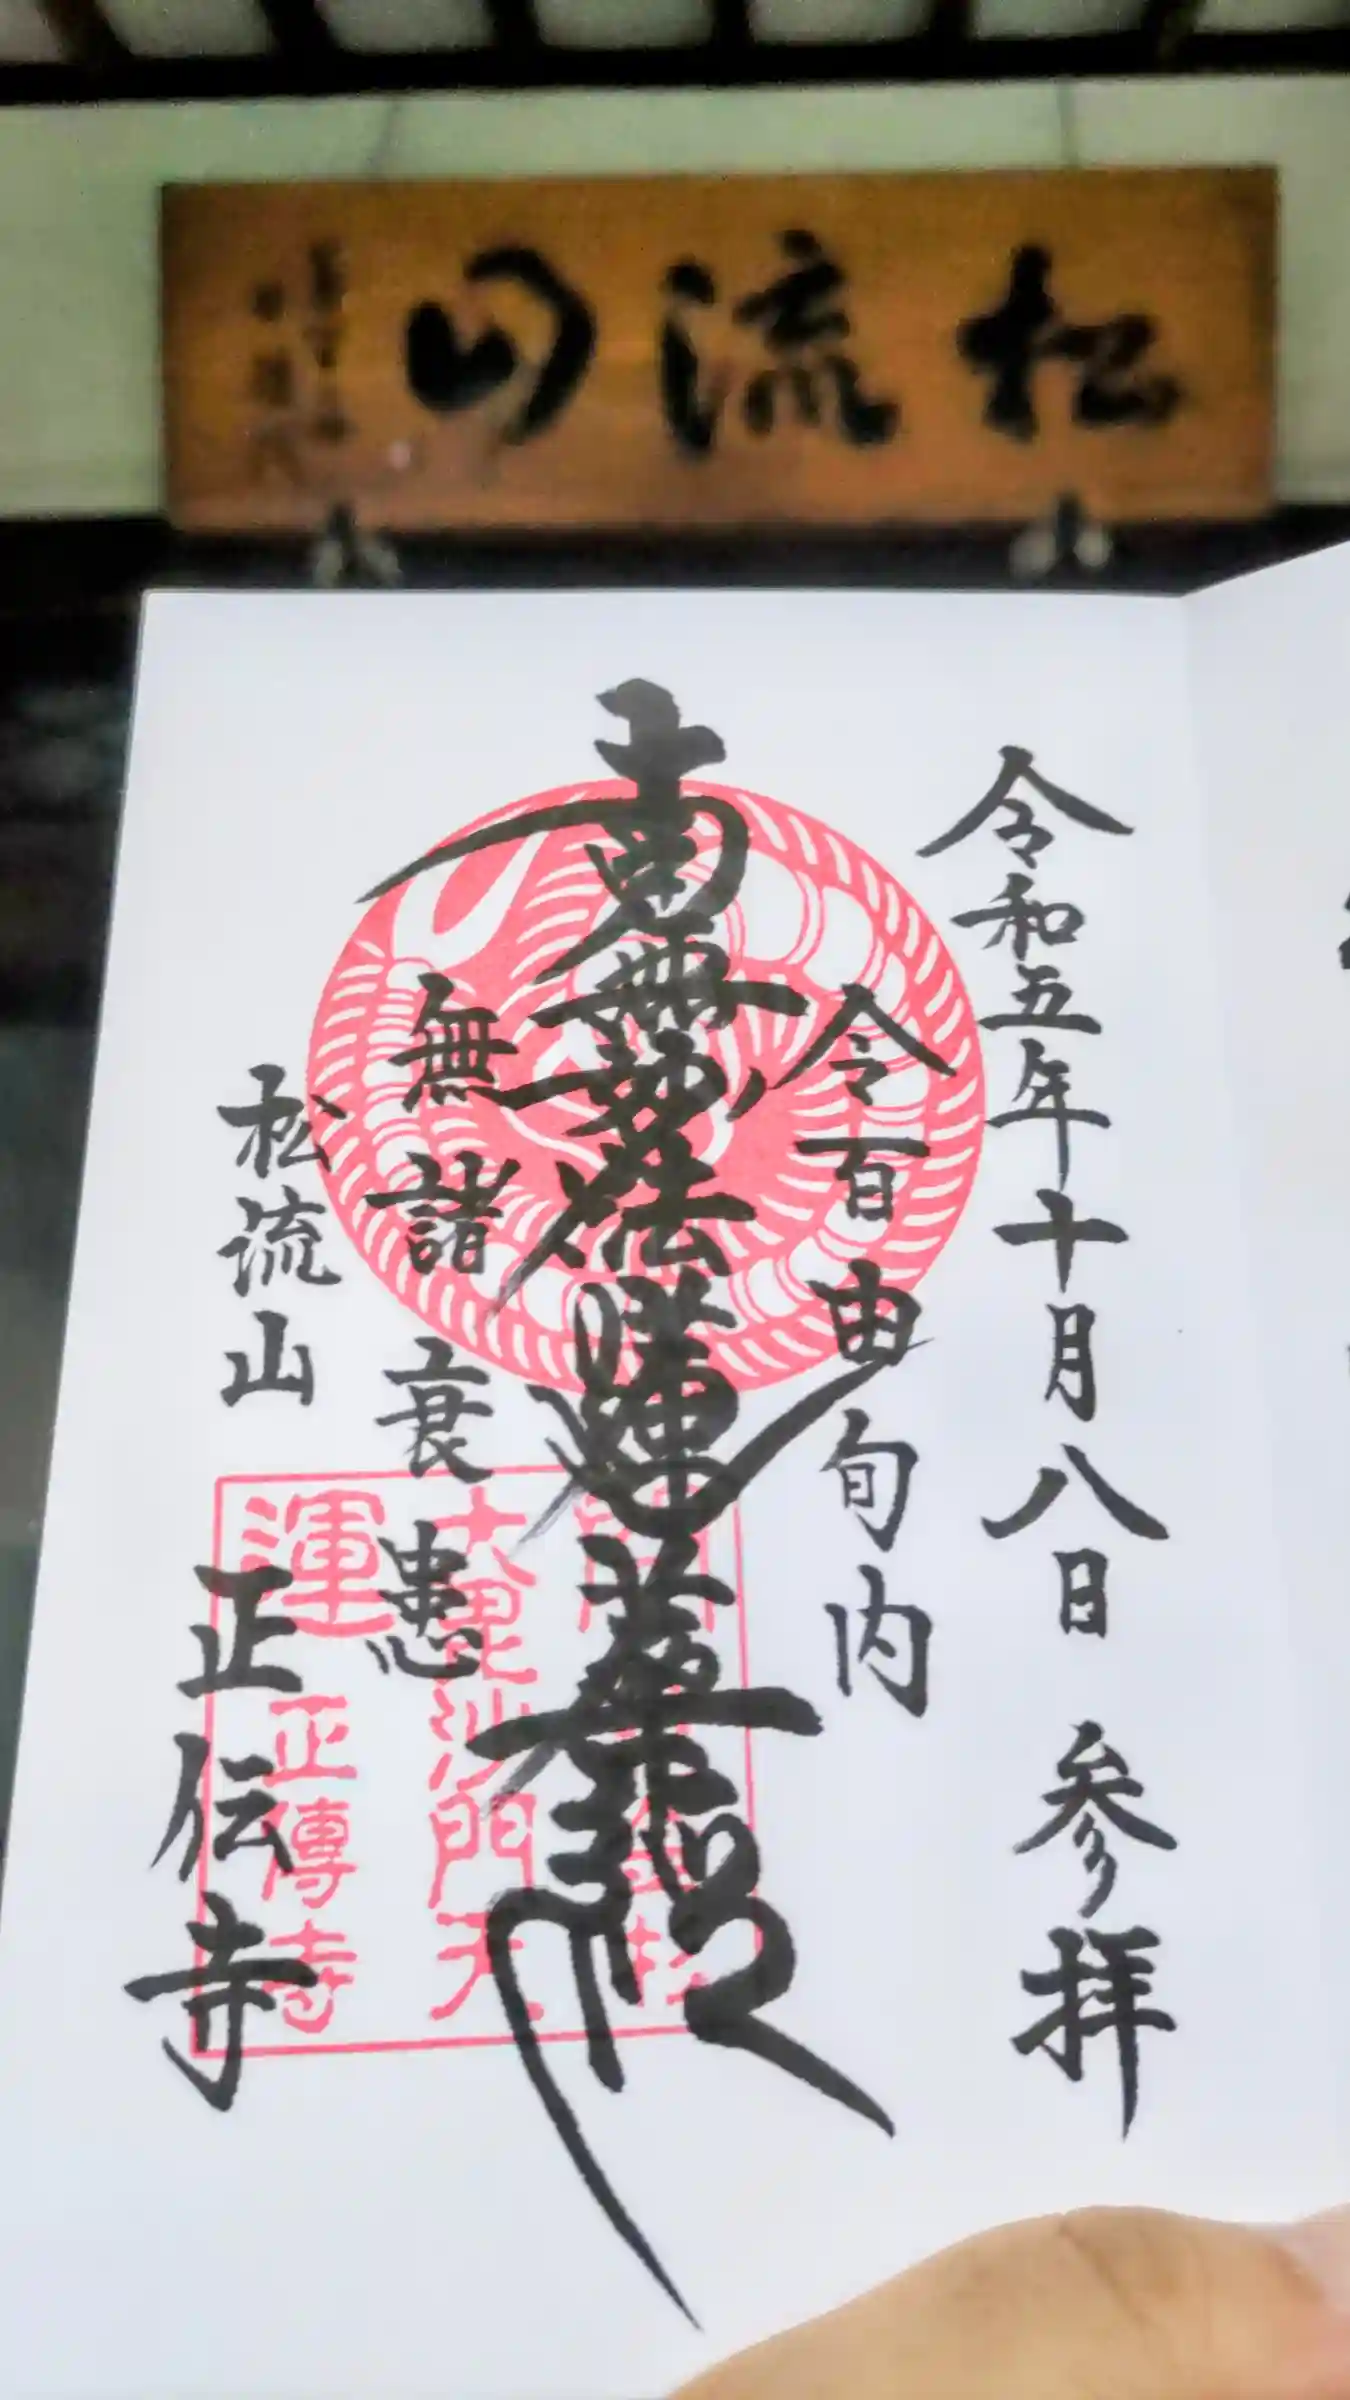 松流山
令和五年十月八日 参拝
令百由旬内
南無妙法蓮華経
無諸衰患
松流山
正伝寺
大毘沙門天
運
正傳寺